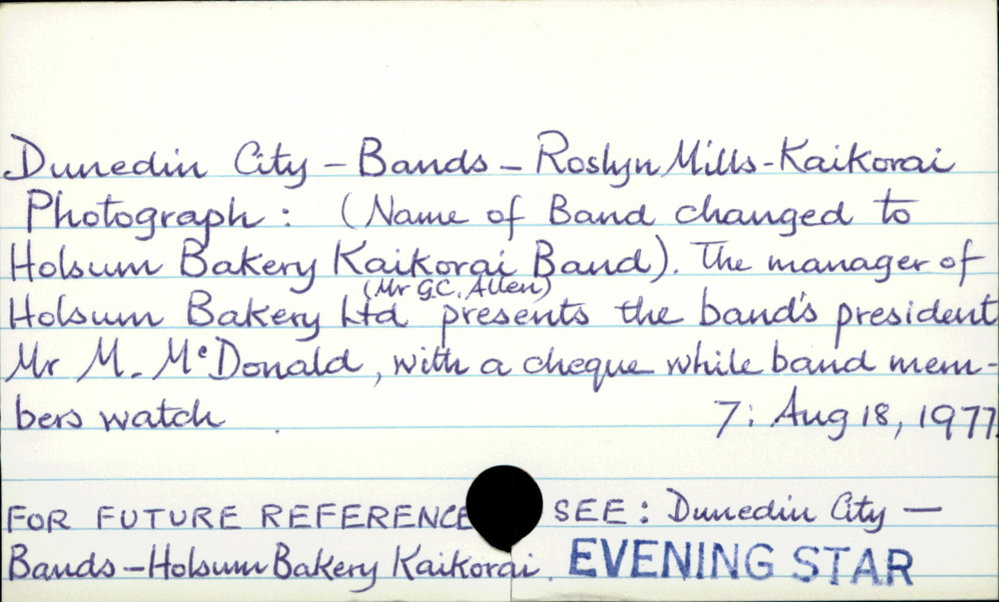 Dunedin City - Bands - Roslyn Mills - Kaikorai
Photograph : (Name of Band changed to
Holsum Bakery Kaikorai Band). The manager of
(Mr G.C. Allen)
Holsum Bakery Ltd presents the band's president
Mr M. McDonald, with a cheque while band mem-
bers watch 7: Aug 18, 1977.
FOR FUTURE REFERENCE SEE: Dunedin City —
Bands - Holsum Bakery Kaikorai. EVENING STAR